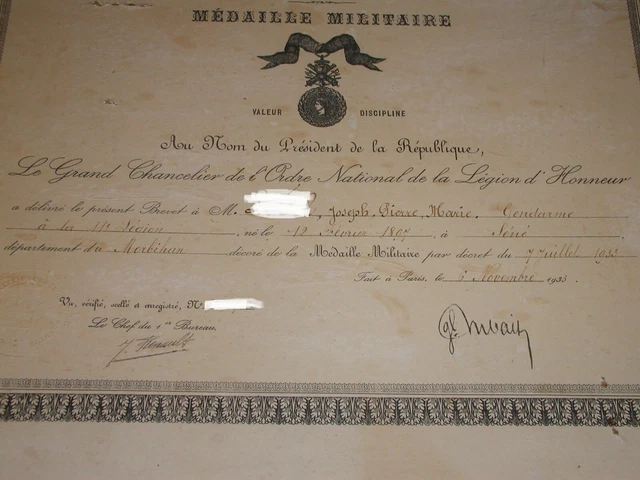 MÉDAILLE MILITAIRE
VALEUR DISCIPLINE
Au Nom du Président de la République,
Le Grand Chancelier de l'Ordre National de la Légion d'Honneur
a délivré le présent Brevet à M. , Joseph, Pierre, Marie, Gendarme
à la 11e Légion né le 12 Février 1897, à Séné
département du Morbihan décoré de la Médaille Militaire par décret du 7 Juillet 1935
Fait à Paris, le 6 Novembre 1935
Vu, vérifié, scellé et enregistré, N°
Le Chef du 1er Bureau,